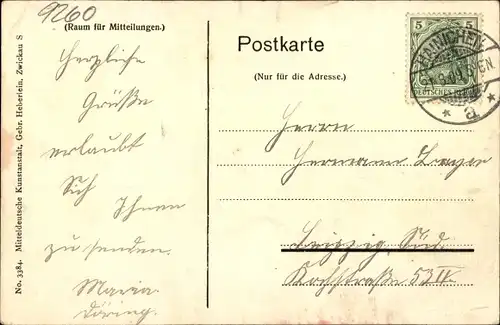 9260
(Raum für Mitteilungen.)
Postkarte
(Nur für die Adresse.)
5 5
DEUTSCHES REICH
* a *
Herzliche
Grüße
erlaubt
Sich Ihnen
zu senden.
Maria
Döring.
Herrn
Hermann
Leipzig Süd.
Kochstraße 53 IV.
No. 3384. Mitteldeutsche Kunstanstalt, Gebr. Heberlein, Zwickau S